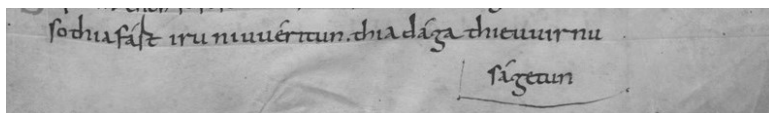 so thia fást iru niuuéritun. thia dága thie uuir nu
ságetun